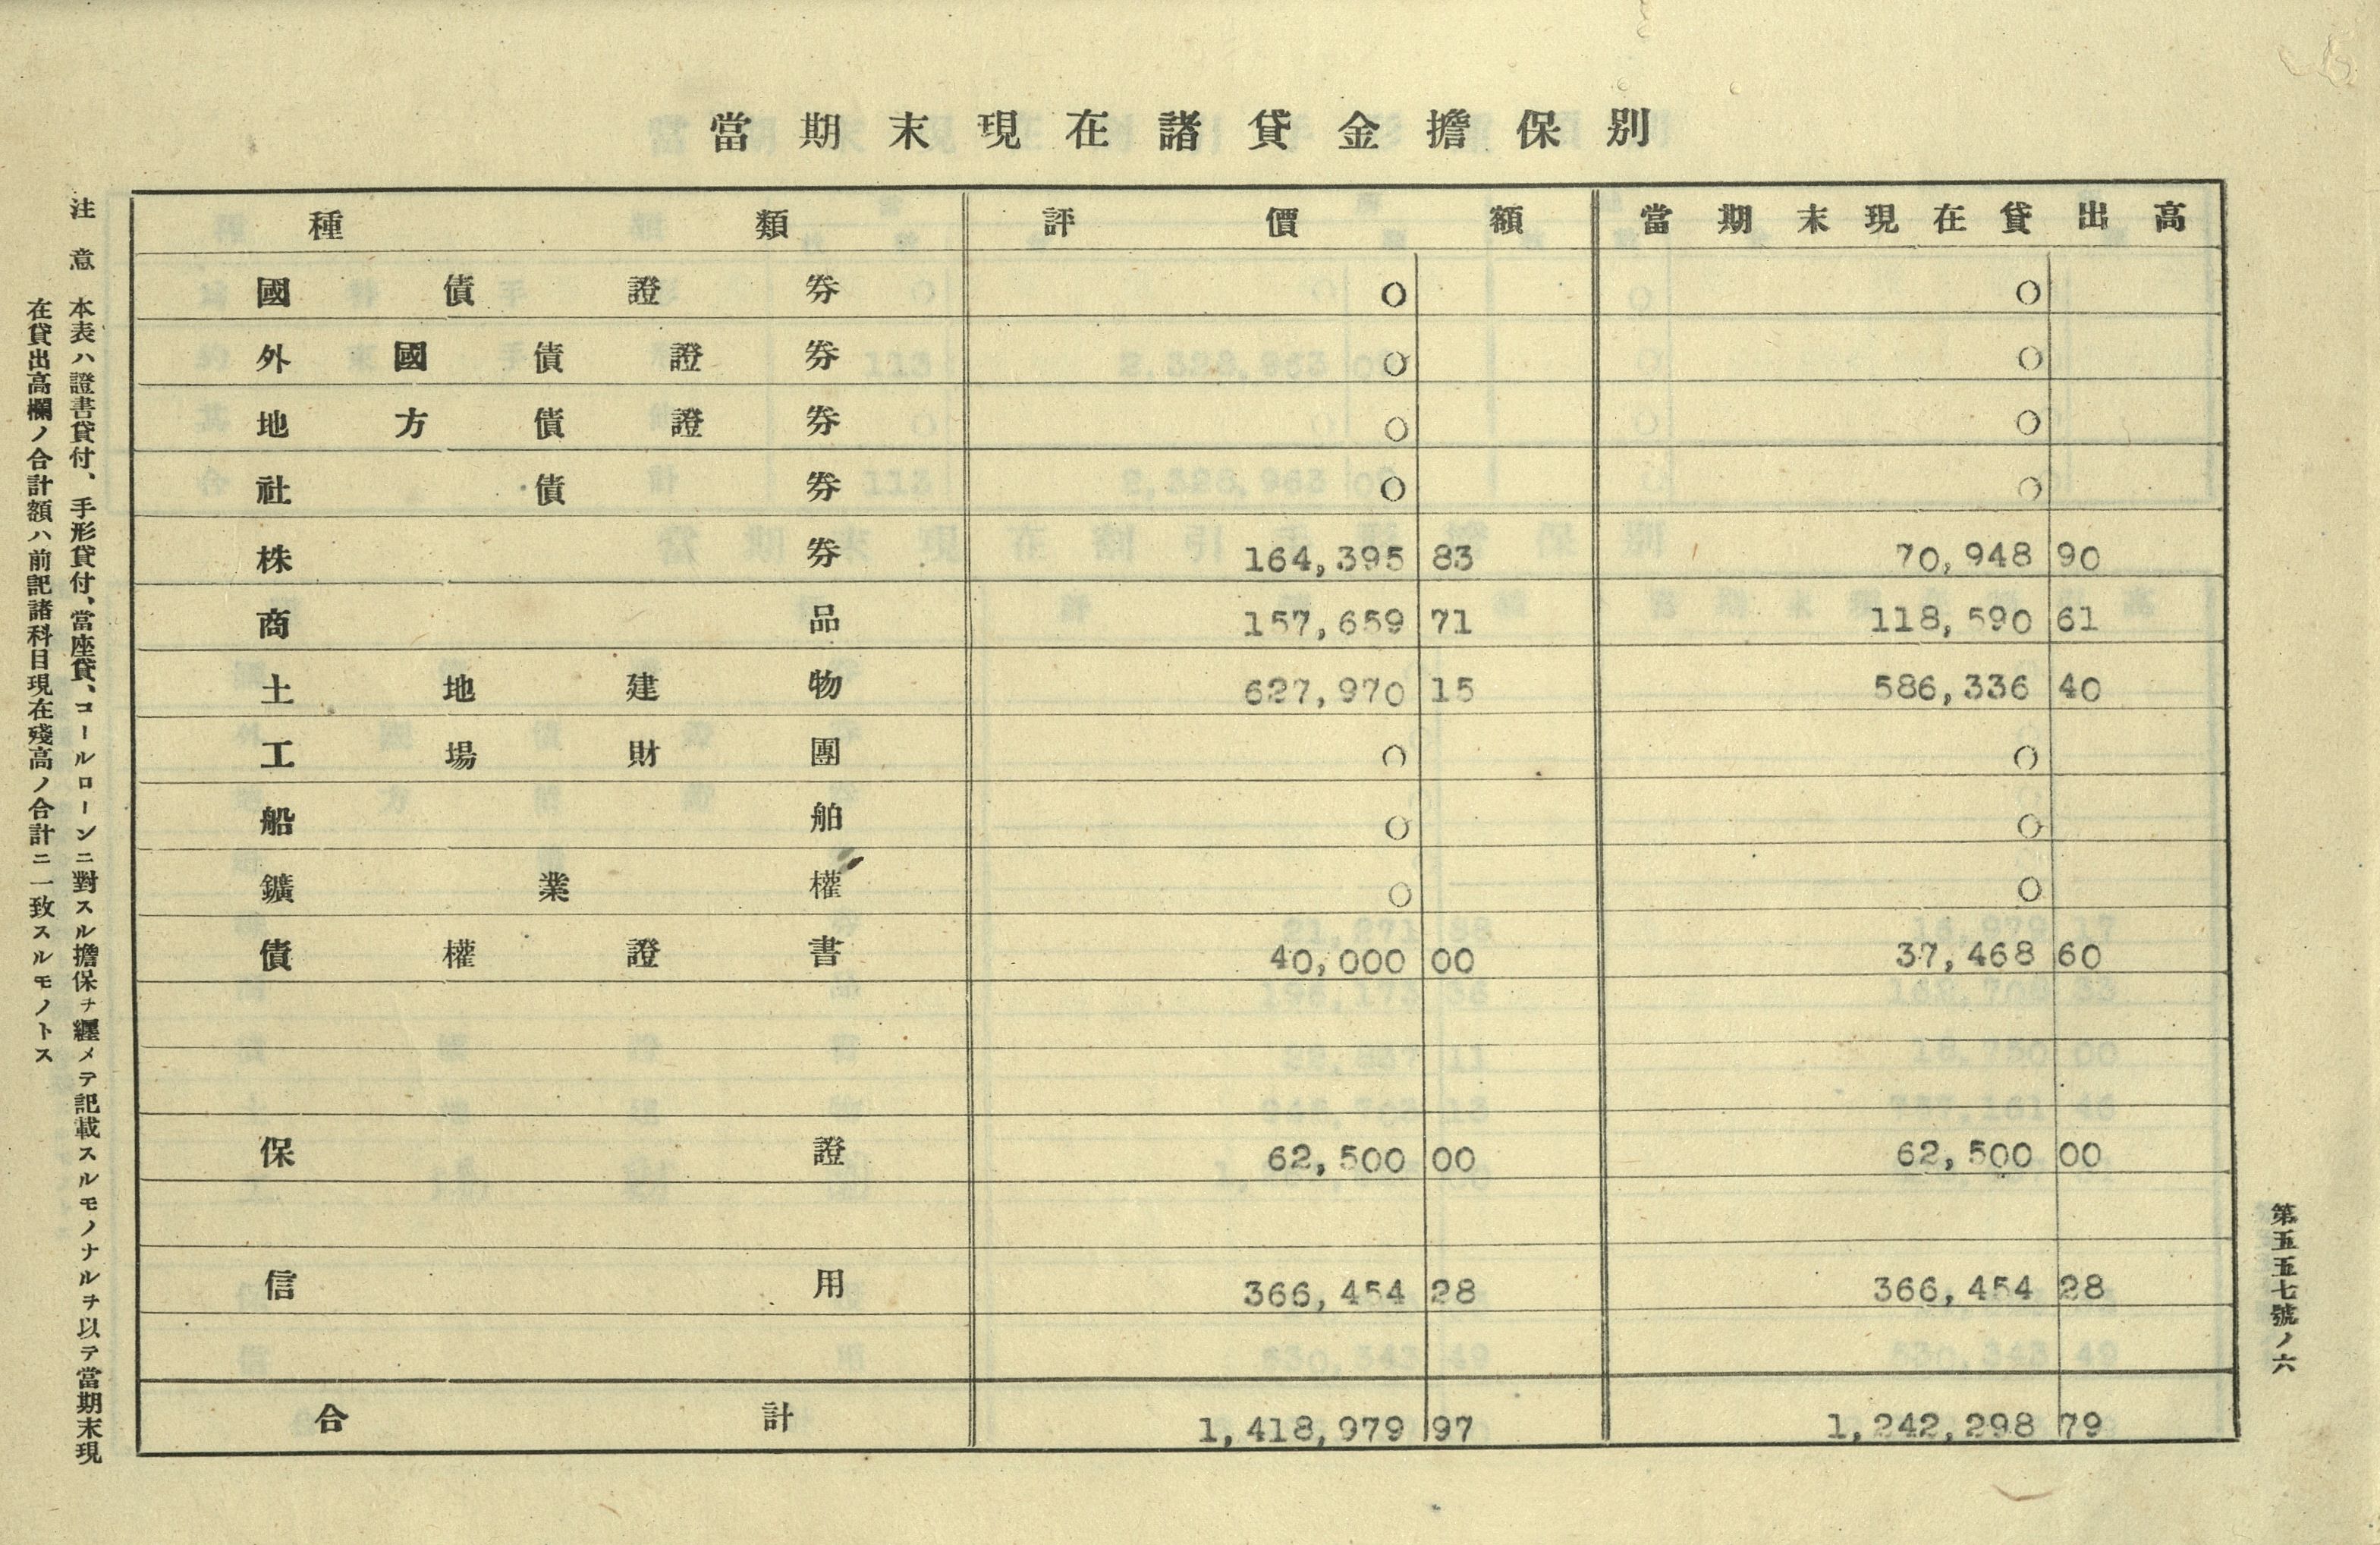 當期末現在諸貸金擔保別
種類 評價額 當期末現在貸出高
國債證券 0 0
外國債證券 0 0
地方債證券 0 0
社債券 0 0
株券 164,395 83 70,948 90
商品 157,659 71 118,590 61
土地建物 627,970 15 586,336 40
工場財團 0 0
船舶 0 0
鑛業權 0 0
債權證書 40,000 00 37,468 60
保證 62,500 00 62,500 00
信用 366,454 28 366,454 28
合計 1,418,979 97 1,242,298 79
第五五七號ノ六
注意 本表ハ證書貸付、手形貸付、當座貸、コールローンニ對スル擔保ヲ纒メテ記載スルモノナルヲ以テ當期末現
在貸出高欄ノ合計額ハ前記諸科目現在殘高ノ合計ニ一致スルモノトス